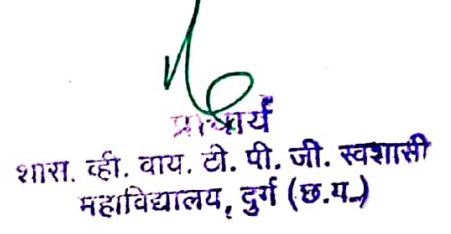 प्राचार्य
शास. व्ही. वाय. टी. पी. जी. स्वशासी
महाविद्यालय, दुर्ग (छ.ग.)